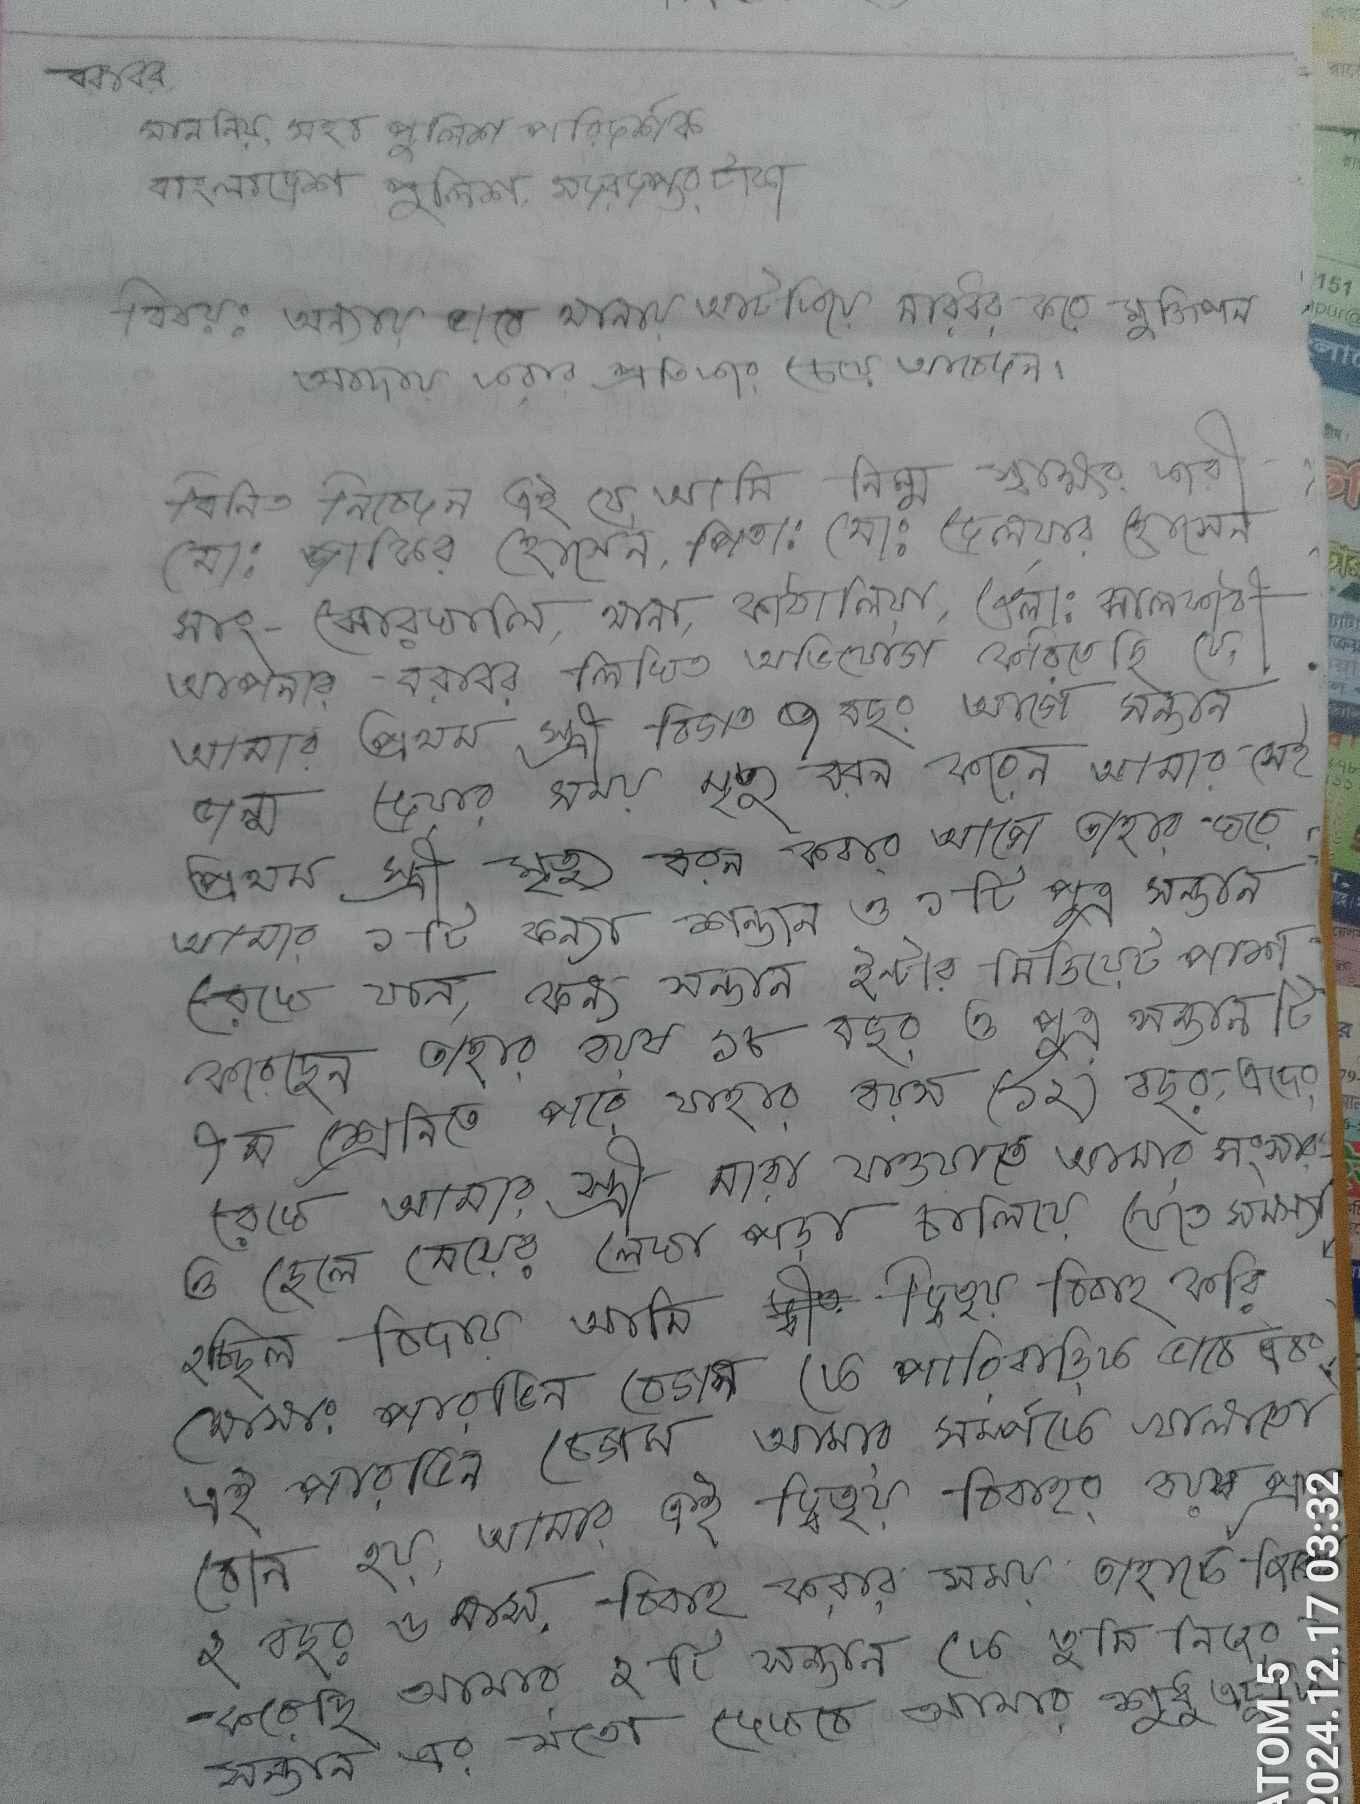 বরাবর
মাননিয়, মহা পুলিশ পরিদর্শক
বাংলাদেশ পুলিশ,
বিষয়ঃ অন্যায় ভাবে থানায় মারধর করে মুক্তিপন
আদায় করার প্রতিকার চেয়ে আবেদন।
বিনিত নিবেদন এই যে, আমি নিম্ম স্বাক্ষর কারী
মোঃ জাকির হোসেন, পিতাঃ মোঃ দেলয়ার হোসেন
সাং- থানা, কাঠালিয়া, জেলাঃ ঝালকাঠী
আপনার বরাবর লিখিত অভিযোগ করিতেছি যে,
আমার প্রথম স্ত্রী বিগত ৭ বছর আগে সন্তান
জন্ম দেয়ার সময় মৃত্যু বরন করেন আমার সেই
প্রথম স্ত্রী মৃত্যু বরন করার আগে তাহার ঘরে
আমার ১টি কন্যা শন্তান ও ১টি পুত্র সন্তান
রেখে যান, কন্যা সন্তান ইন্টার মিডিয়েট পাশ
করেছেন তাহার বয়স ১৮ বছর ও পুত্র সন্তান টি
৭ম শ্রেনিতে পরে যাহার বয়স (১২) বছর, এদের
রেখে আমার স্ত্রী মারা যাওয়াতে আমার সংসার
ও ছেলে মেয়ের লেখা পড়া চালিয়ে যেতে সমস্যা
হচ্ছিল বিদায় আমি দ্বিত্বয় বিবাহ করি
মোসাঃ পারভিন বেগম কে পারিবারিক ভাবে এবং
এই পারভিন বেগম আমার সম্পর্কে খালাতো
বোন হয়, আমার এই দ্বিত্বয় বিবাহর বয়স প্রায়
২ বছর ৬ মাস, বিবাহ করার সময় তাহাকে
করেছি আমার ২টি সন্তান কে তুমি নিজের
সন্তান এর মতো দেখবে আমার শুধু
ATOM 5
2024.12.17 03:32